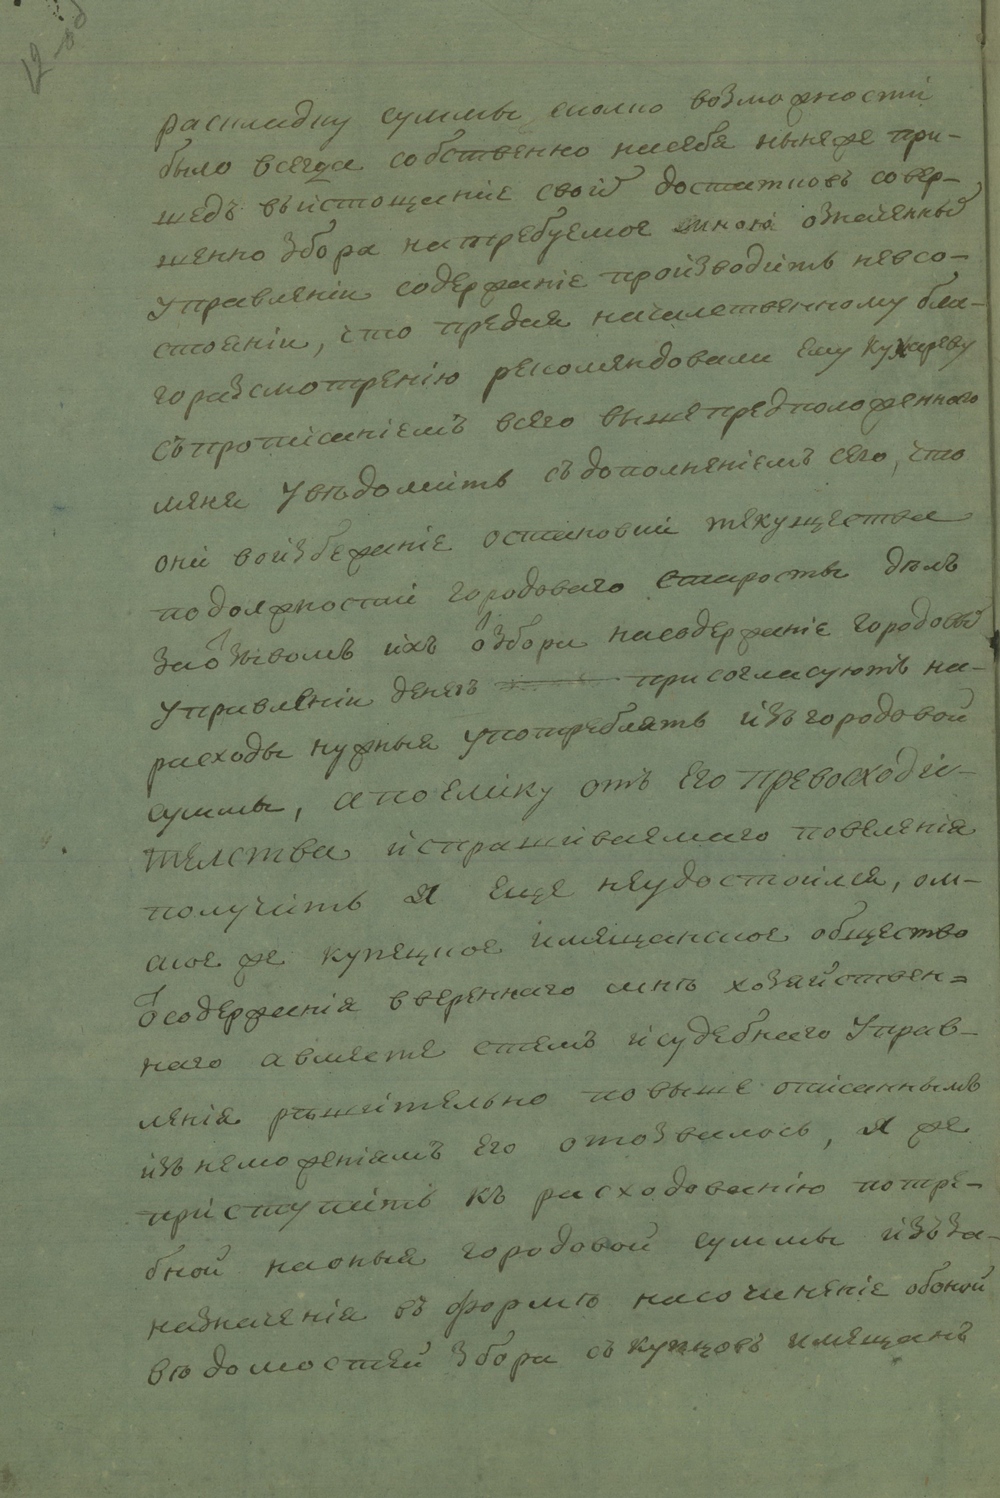 12 об
раскладку суммы сколко возможности
было всегда собственно насебя ныняже при-
шедъ въистощание свой достатковъ совер-
женно збора натребуемое мною означенный
управлении содержание производить невсо-
стоянии, что предая начальственному бла-
горазсмотрению рекомяндовали ему Кухареву
съпрописаниемъ всего вышепредположенного
меня уведомить съдополнениемъ сего, что
они воизбежание остановки текущества
подолжности городоваго старосты делъ
заозывомъ ихъ о зборе насодержание городовой
управлении денегъ присогласуютъ на-
расходы нужныя употреблять изъ городовой
суммы, а поелику отъ Его превосходи-
телства испрашиваемаго повеления
получить я еще неудостоился, ом-
ское же купецкое имещанское общество
осодержания ввереннаго мне хозяйствен-
наго авместе стемъ исудебнаго Управ-
ления решительно повыше описаннымъ
изънеможениямъ его отозвалось, я же
приступить къ расходованию потре-
бной наоныя городовой суммы изъза-
назначения въ форме насочинение обоной
ведомостей збора съ купцовъ имещанъ